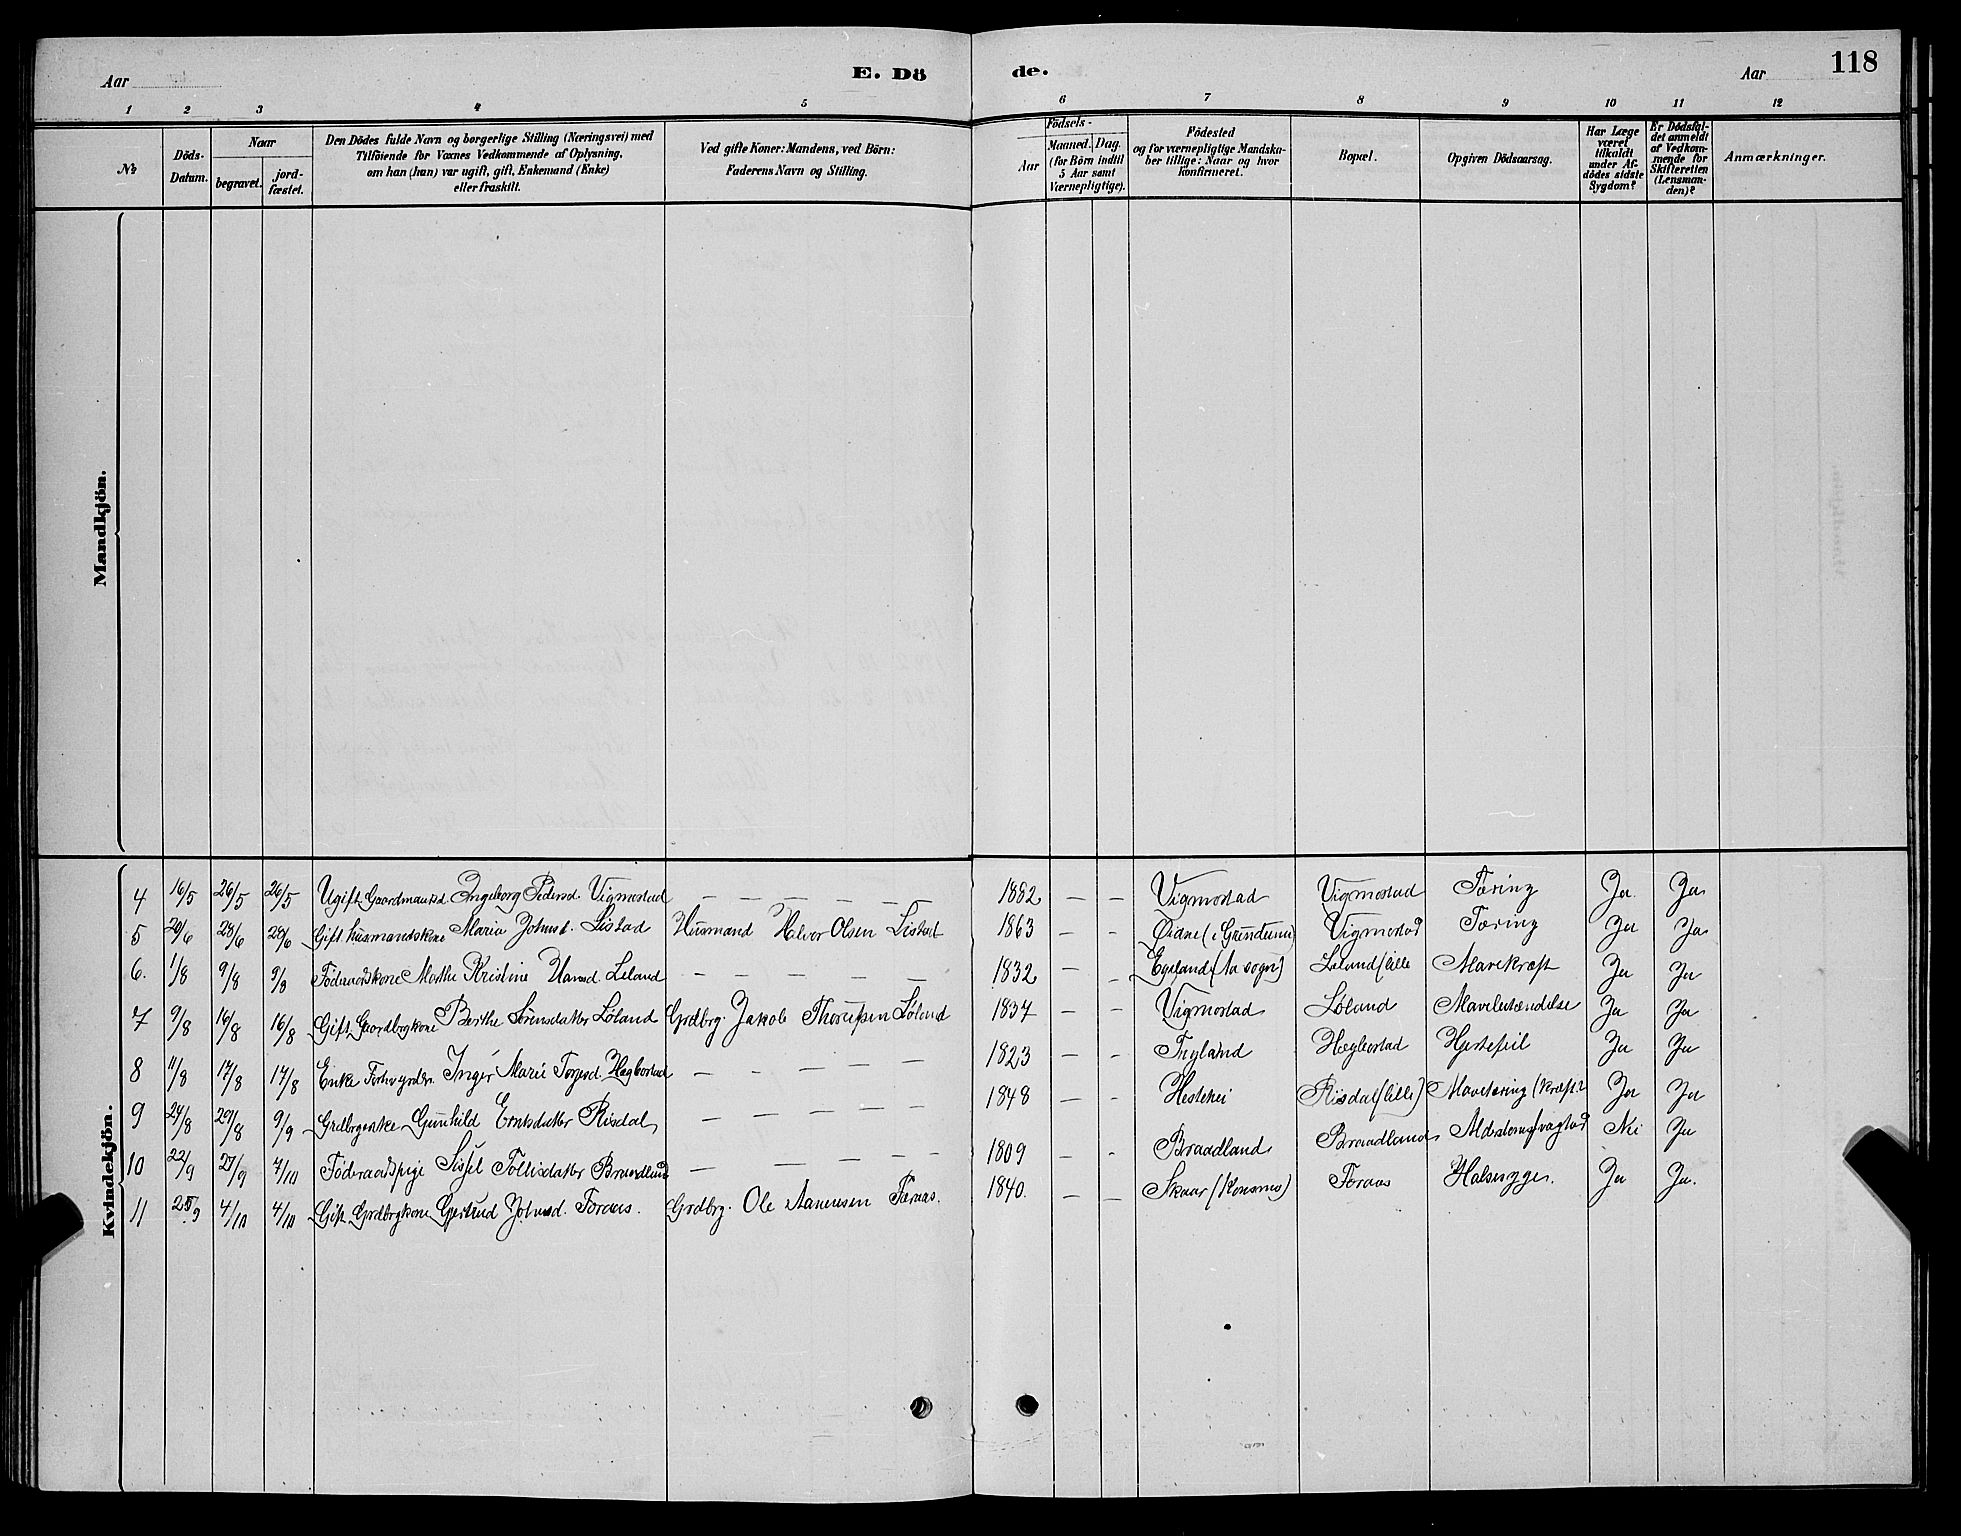 Aar
E. Dö
de.
Aar
118
1 2 3 4 5 6 7 8 9 10 11 12
№
Döds-
Datum.
Naar
begravet.
jord-
fæstet.
Den Dödes fulde Navn og borgerlige Stilling (Næringsvei) med
Tilföiende for Voxnes Vedkommende af Oplysning,
om han (hun) var ugift, gift, Enkemand (Enke)
eller fraskilt.
Ved gifte Koner: Mandens, ved Börn:
Faderens Navn og Stilling.
Födsels-
Aar
Maaned. Dag.
(for Börn indtil
5 Aar samt
Værnepligtige).
Födested
og for værnepligtige Mandska-
ber tillige: Naar og hvor
konfirmeret.
Bopæl.
Opgiven Dödsaarsag.
Har Læge
været
tilkaldt
under Af-
dödes sidste
Sygdom?
Er Dödsfal-
det anmeldt
af Vedkom-
mende for
Skifteretten
(Lensman-
den)?
Anmærkninger.
Mandkjön.
Kvindekjön.
4 16/5 26/5 26/5 Ugift Gaardmandsd. Ingeborg Pedersd. Vigmostad — — — — — 1882 — — Vigmostad Vigmostad Tæring Ja. Ja
5 20/6 28/6 28/6 Gift husmandskone Maria Johnsd. Listad Husmand Halvor Olsen Listad 1863 — — Øidne (i Grundsund) Vigmostad Tæring Ja Ja
6. 1/8 9/8 9/8 Föderaadskone Marthe Kristine Hansd. Leland — — — — 1832 — — Egeland (Aa sogn) Løland (lille Mavekræft Ja Ja
7 9/8 16/8 16/8 Gift Gaardbrgkone Berthe Sörensdatter Løland Grdbrg. Jakob Thorupsen Løland 1837 — — Vigmostad Løland Mavebetændelse Ja Ja
8 11/8 17/8 17/8 Enke Inger Marie Torjesd. Hægbostad — — — — 1823 — — Hægbostad Hjertefeil Ja Ja
9 24/8 29/8 9/9 Grdbrgenke Gunhild Risdal — — — — 1848 — — Risdal (lille) Mavetæring (kræft? Ja Ja
10 22/9 27/9 4/10 Föderaadspige Sissel Tollisdatter Braadland — — — — — 1809 — — Braadland Braadland Nei Ja
11 25/9 4/10 4/10 Gift Grdbrgkone Gjertrud Johnsd. Foraas. Grdbrg. Ole Aanensen Foraas. 1840. — — Skaar (Konsmo) Foraas Halssyge. Ja Ja.